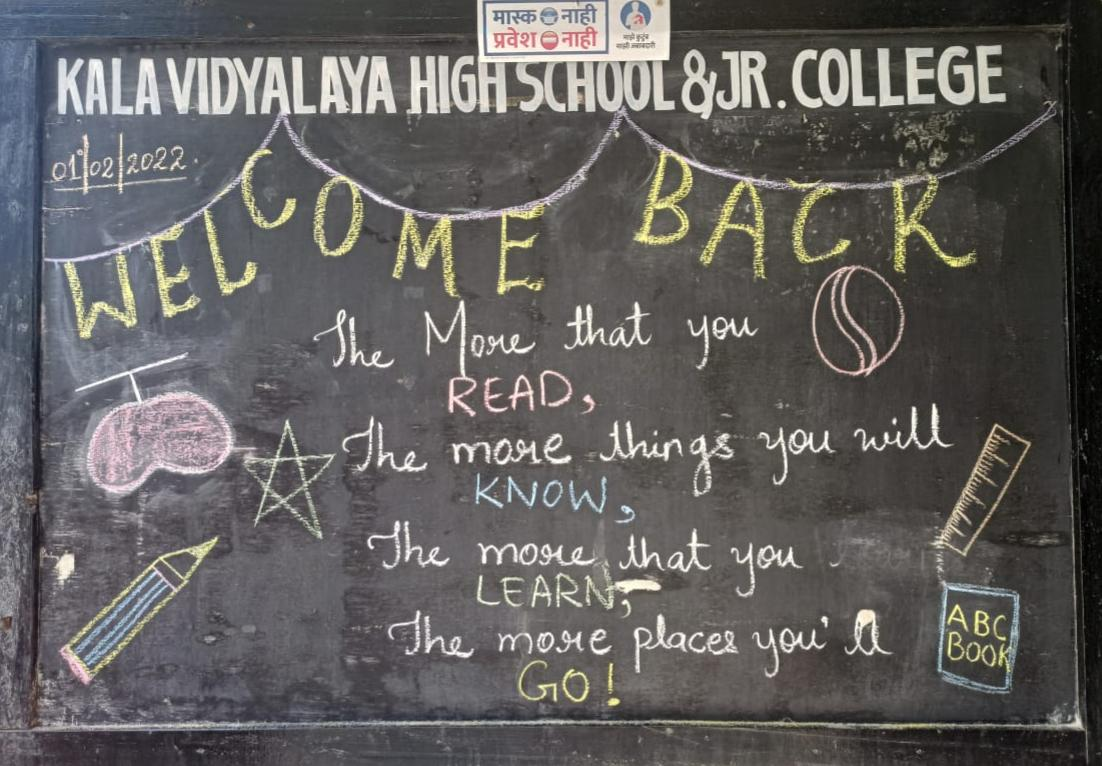 मास्क नाही
प्रवेश नाही
माझे कुटुंब
माझी जबाबदारी
KALA VIDYALAYA HIGH SCHOOL & JR. COLLEGE
01/02/2022.
WELCOME BACK
The More that you
READ,
The more things you will
KNOW,
The more that you
LEARN,
The more places you'll
GO!
ABC
BOOK